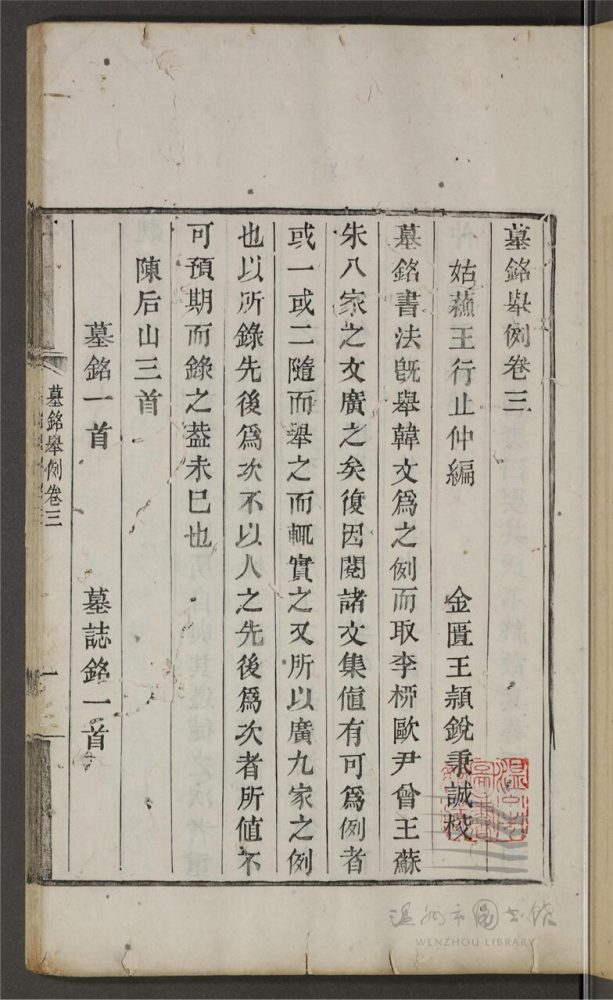 墓銘舉例卷三
姑蘇王行止仲編　金匱王穎銳秉誠校
墓銘書法旣舉韓文爲之例而取李栁歐尹曾王蘇
朱八家之文廣之矣復因閱諸文集値有可爲例者
或一或二隨而舉之而輒實之又所以廣九家之例
也以所錄先後爲次不以人之先後爲次者所値不
可預期而錄之葢未巳也
陳后山三首
墓銘一首　墓誌銘一首
墓銘舉例卷三
一
温州市圖書館
WENZHOU LIBRARY